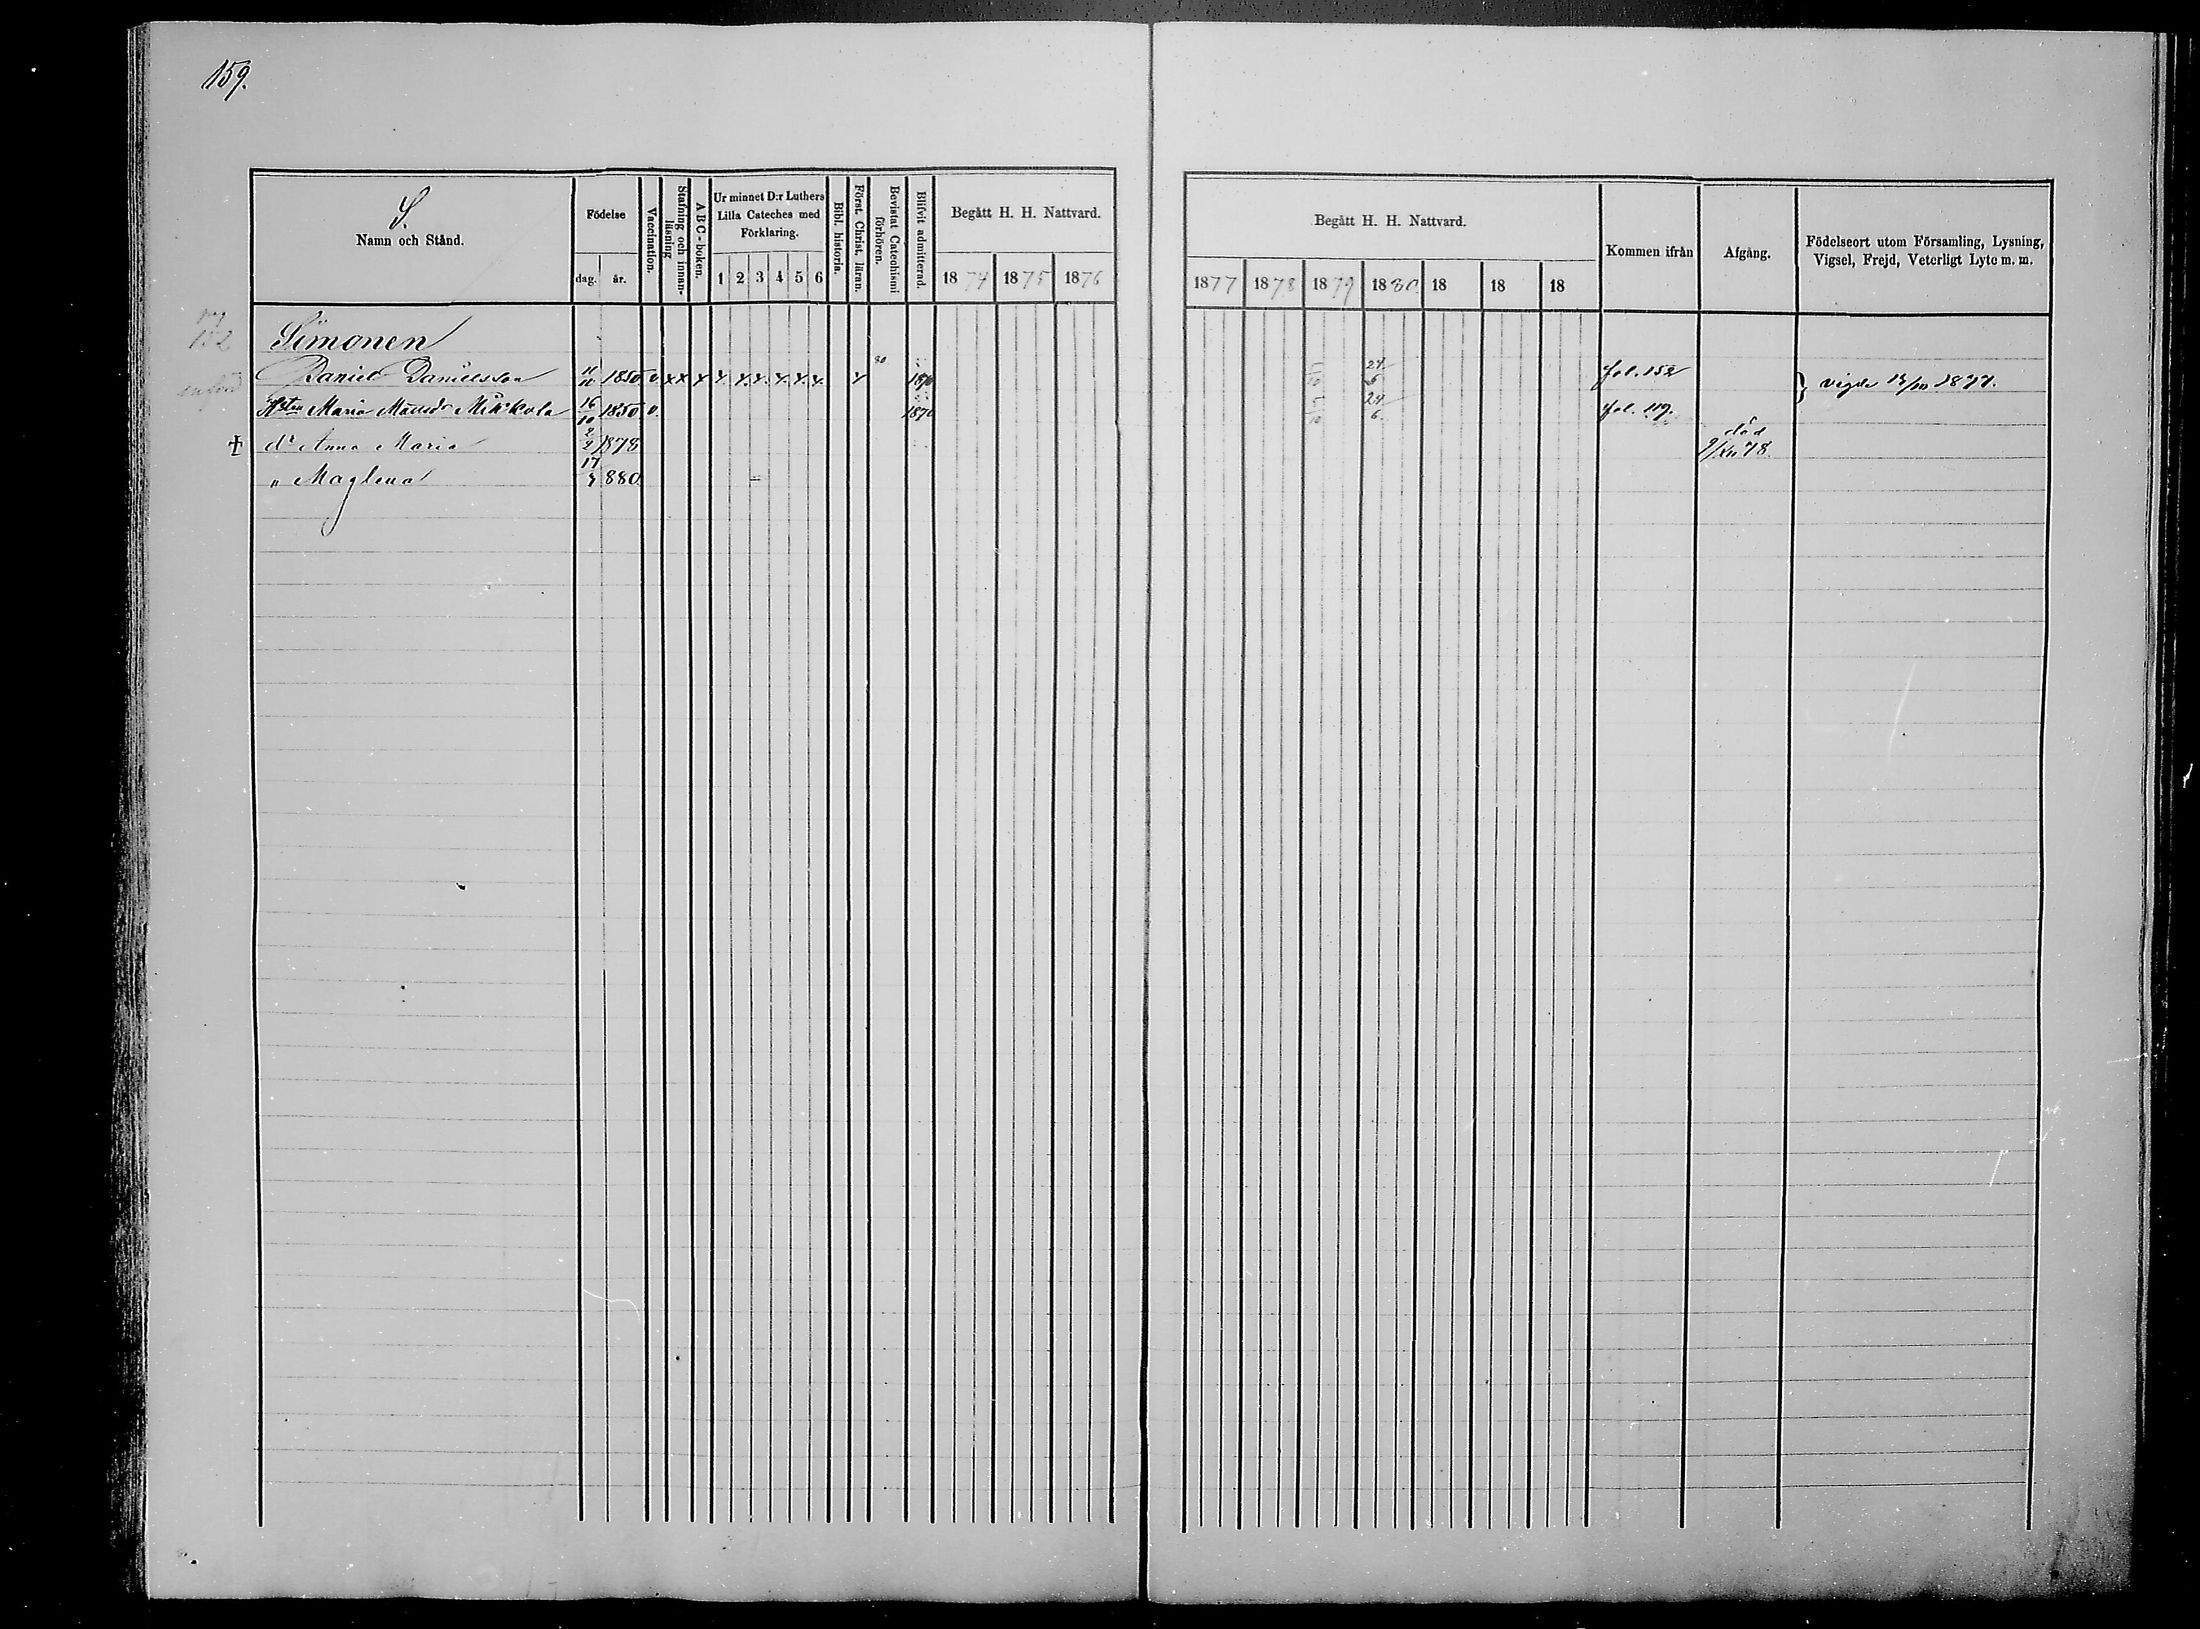 159.
S.
Namn och Stånd.
Födelse
dag. år.
Vaccination.
Stafning och innanläsning
ABC-boken.
Ur minnet D:r Luthers Lilla Cateches med Förklaring.
1 2 3 4 5 6
Bibl. historia.
Först. Christ. läran.
Bevistat Catechismi förhören.
Blifvit admitterad.
Begått H. H. Nattvard.
1874 1875 1876
Begått H. H. Nattvard.
1877 1878 1879 1880 18 18 18
Kommen ifrån
Afgång.
Födelseort utom Församling, Lysning, Vigsel, Frejd, Veterligt Lyte m. m.
152
Simonen
Daniel Danielsson 1850 v. 80 1870 24/6 fol. 152 } vigde 1877.
Hstru Maria Mattsdr Mikkola 16/10 1850 v. 1870 24/6 fol. 119.
† dr Anna Maria 2/2 1878 död 9/XII 78.
" Maglena 17 880